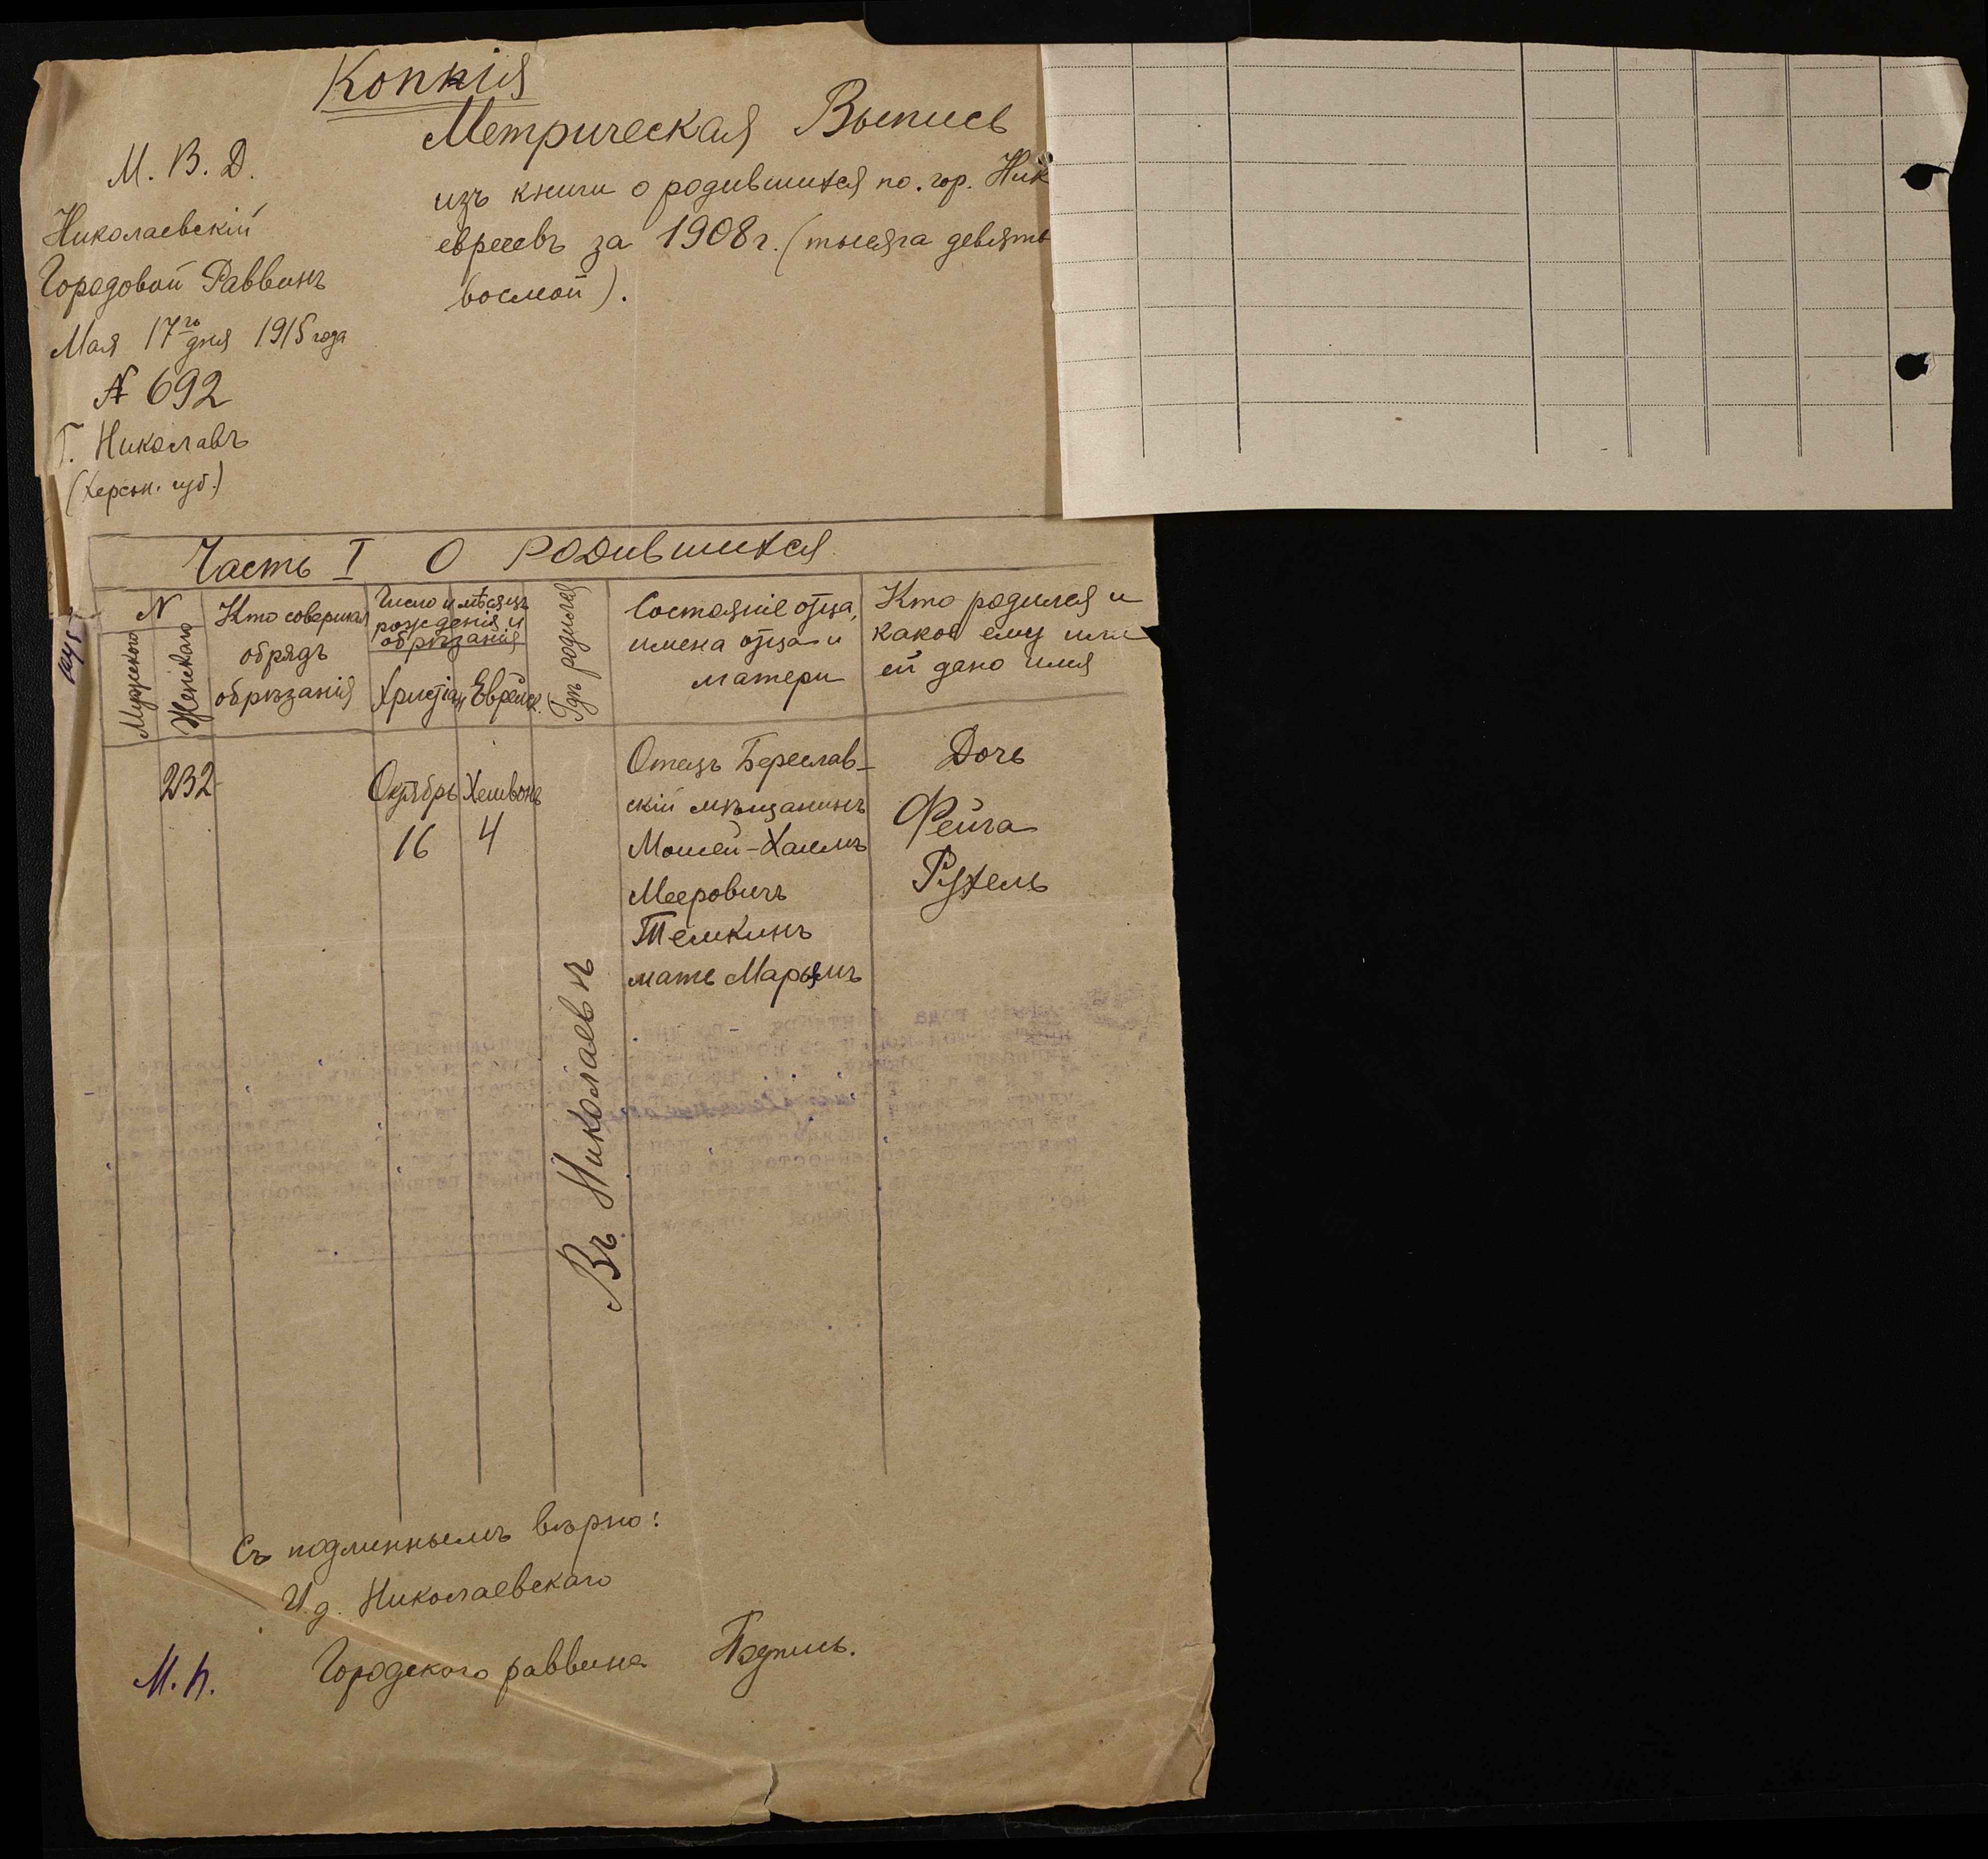 Коппія
Метрическая Выпись
изъ книги о родившихся по гор. Ник
евреевъ за 1908 г. (тысяча девять
восмой).
М. В. Д.
Николаевскій
Городовой Раввинъ
Мая 17го дня 1915 года
№ 692
Г. Николавъ
(Херсон. губ.)
Часть I О родившихся
N
Мужескаго
Женскаго
Кто совершал
обрядъ
обрѣзанія
Число и мѣсяцъ
рожденія и
обрѣзанія
Христіан
Еврейск.
Гдѣ родился
Состояніе отца,
имена отца и
матери
Кто родился и
какое ему или
ей дано имя
232
Октябрь
16
Хешвонъ
4
Въ Николаевѣ
Отецъ Береслав-
скій мѣщанинъ
Мошей-Хаимъ
Мееровичъ
Темкинъ
мать Марьямъ
Дочь
Фейга
Рухель
Съ подлиннымъ вѣрно:
И. д. Николаевскаго
Городского раввина Подпись.
М. п.